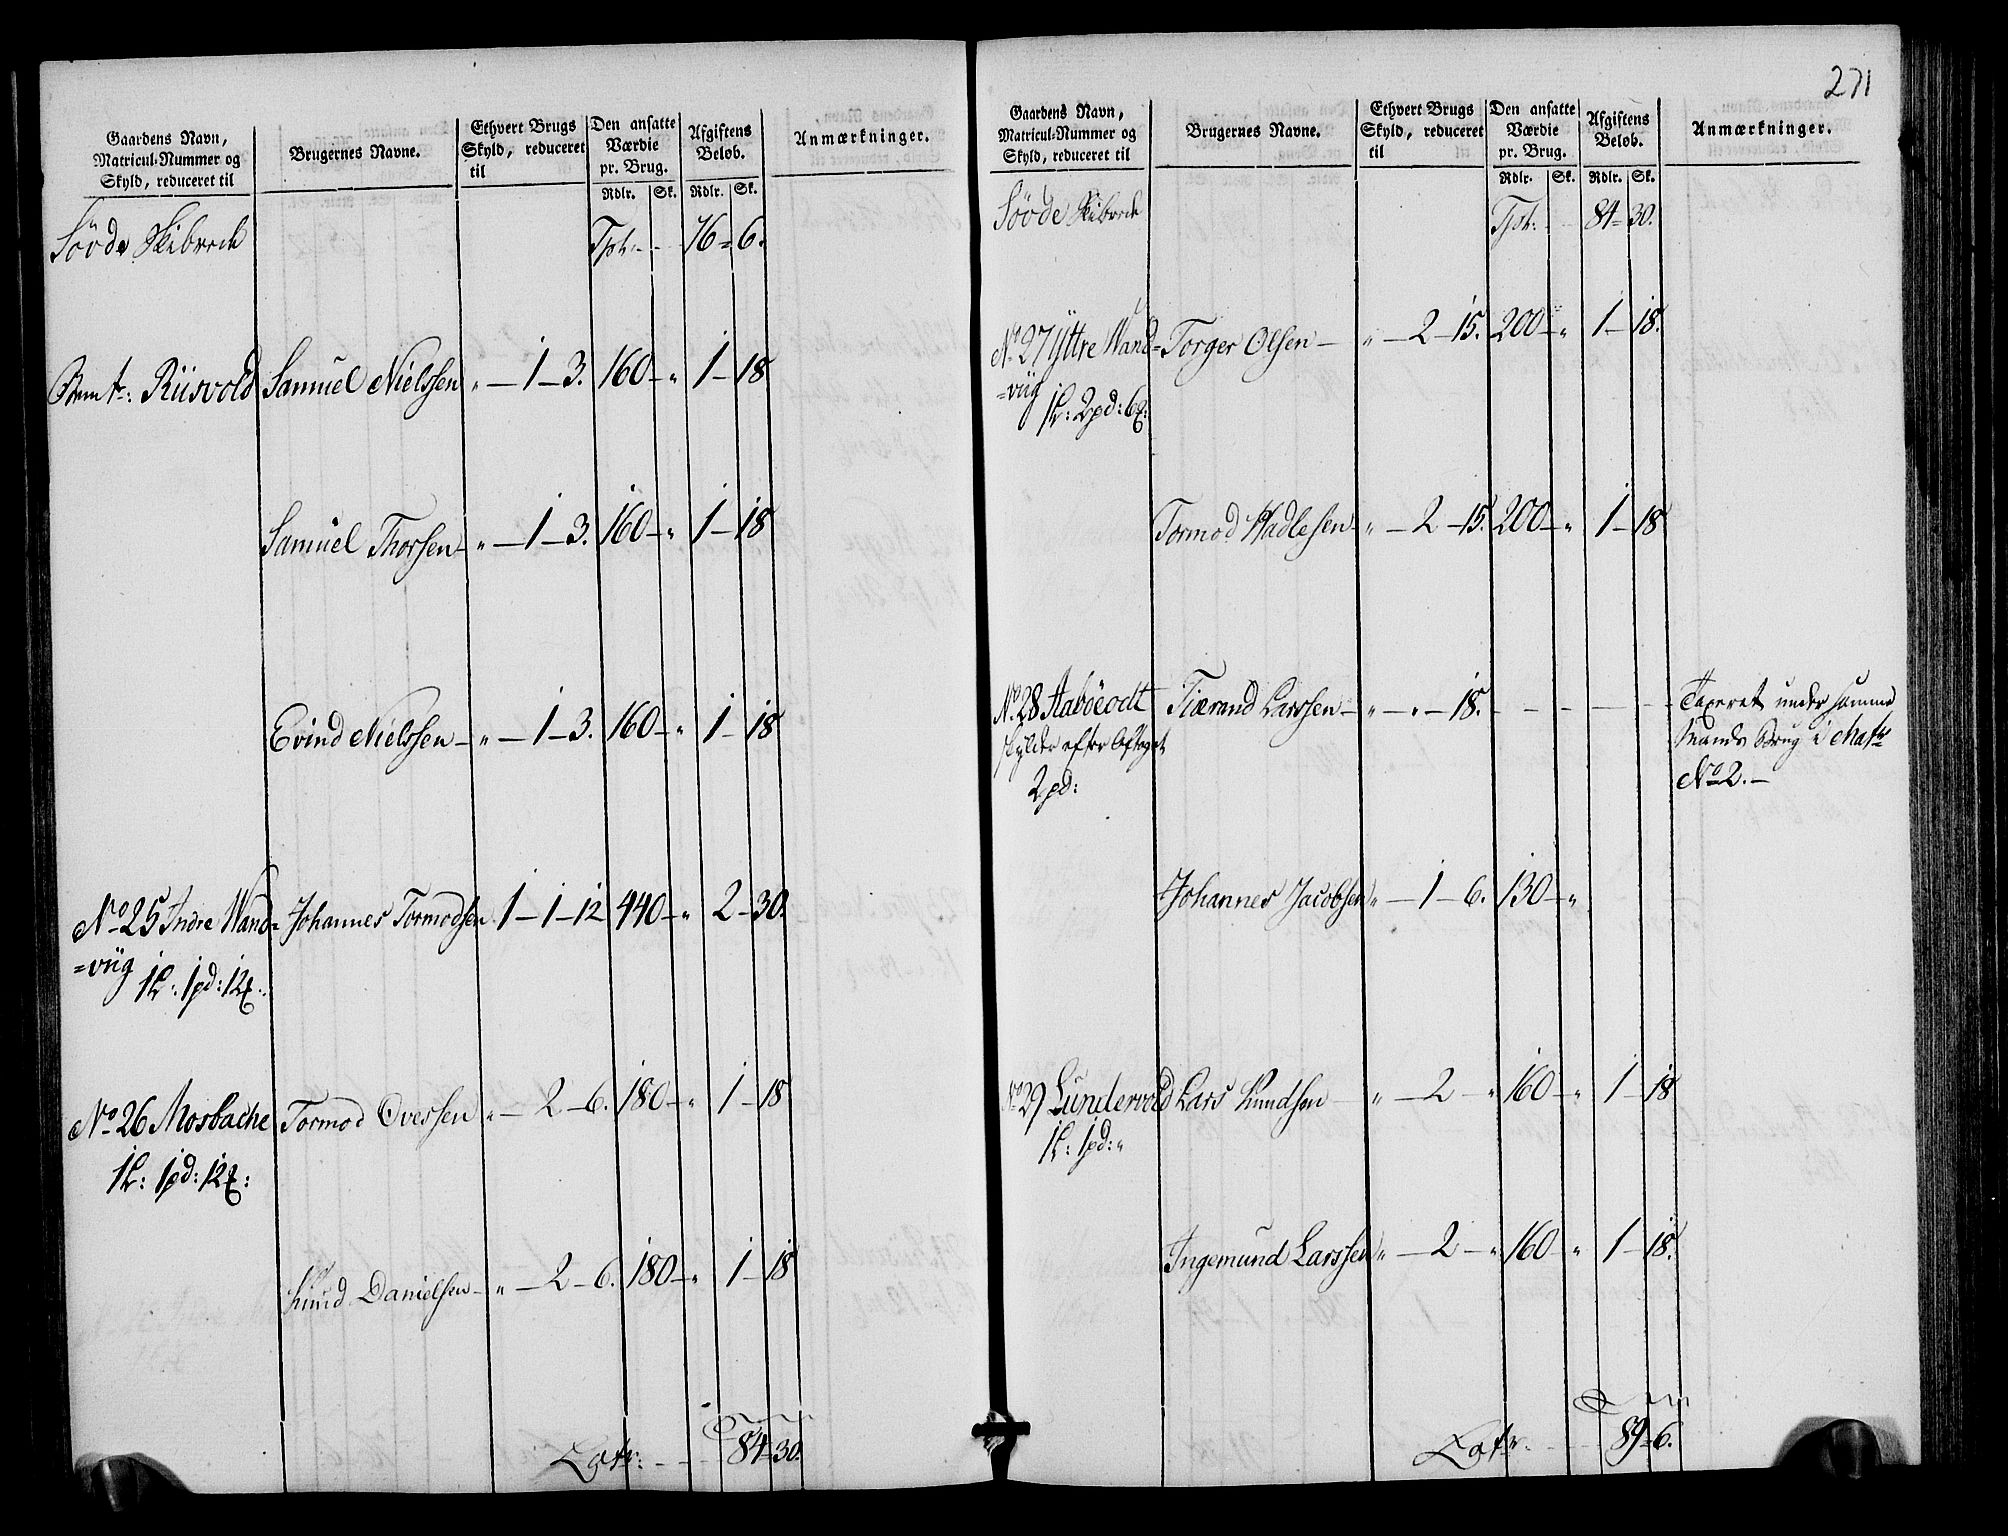 Gaardens Navn, Matricul-Nummer og Skyld, reduceret til | Brugernes Navne. | Ethvert Brugs Skyld, reduceret til | Den ansatte Værdie pr. Brug. Rdlr. Sk. | Afgiftens Beløb. Rdlr. Sk. | Anmærkninger.
Søvde Skibrede Tpt: - 76 = 6.
Riisvold Samuel Nielssen „ — 1 — 3. 160 — „ 1 — 18
Samuel Thorsen — „ — 1 — 3. 160 — „ 1 — 18
Evind Nielssen — „ — 1 — 3. 160 — „ 1 — 18
No 25 Indre Wand= Johannes Tormodsen 1 — 1 — 12 440 — „ 2 — 30.
=viig
1L: 1pd: 12
No 26 Mosbache Tormod Ovessen „ — 2 — 6. 180 — „ 1 — 18
1L: 1pd: 12
Knud Danielsen — „ — 2 — 6. 180 — „ 1 — 18
Latr: - - 84 = 30.
271
Gaardens Navn, Matricul-Nummer og Skyld, reduceret til | Brugernes Navne. | Ethvert Brugs Skyld, reduceret til | Den ansatte Værdie pr. Brug. Rdlr. Sk. | Afgiftens Beløb. Rdlr. Sk. | Anmærkninger.
Søvde Skibrede Tpt: - - 84 = 30.
No 27 Yttre Wand= Torger Olsen — „ — 2 — 15. 200 — „ 1 — 18.
=viig
1L: 2pd: 6
Tormod Hadlesen — „ — 2 — 15. 200 — „ 1 — 18
No 28 Aabøeodt Tiærand Larssen — „ — „ — 18. - - - - - Taxeret under samme
skylder efter Aftaget Mands Brug i Matr
2pd: No 2. —
Johannes Jacobsen „ — 1 — 6. 130 — „
No 29 Lundervold Lars Knudsen „ — 2 — „ 160 — „ 1 — 18
1L: 1pd: „
Ingemund Larssen „ — 2 — „ 160 „ 1 — 18.
Latr: - - 89 = 6.